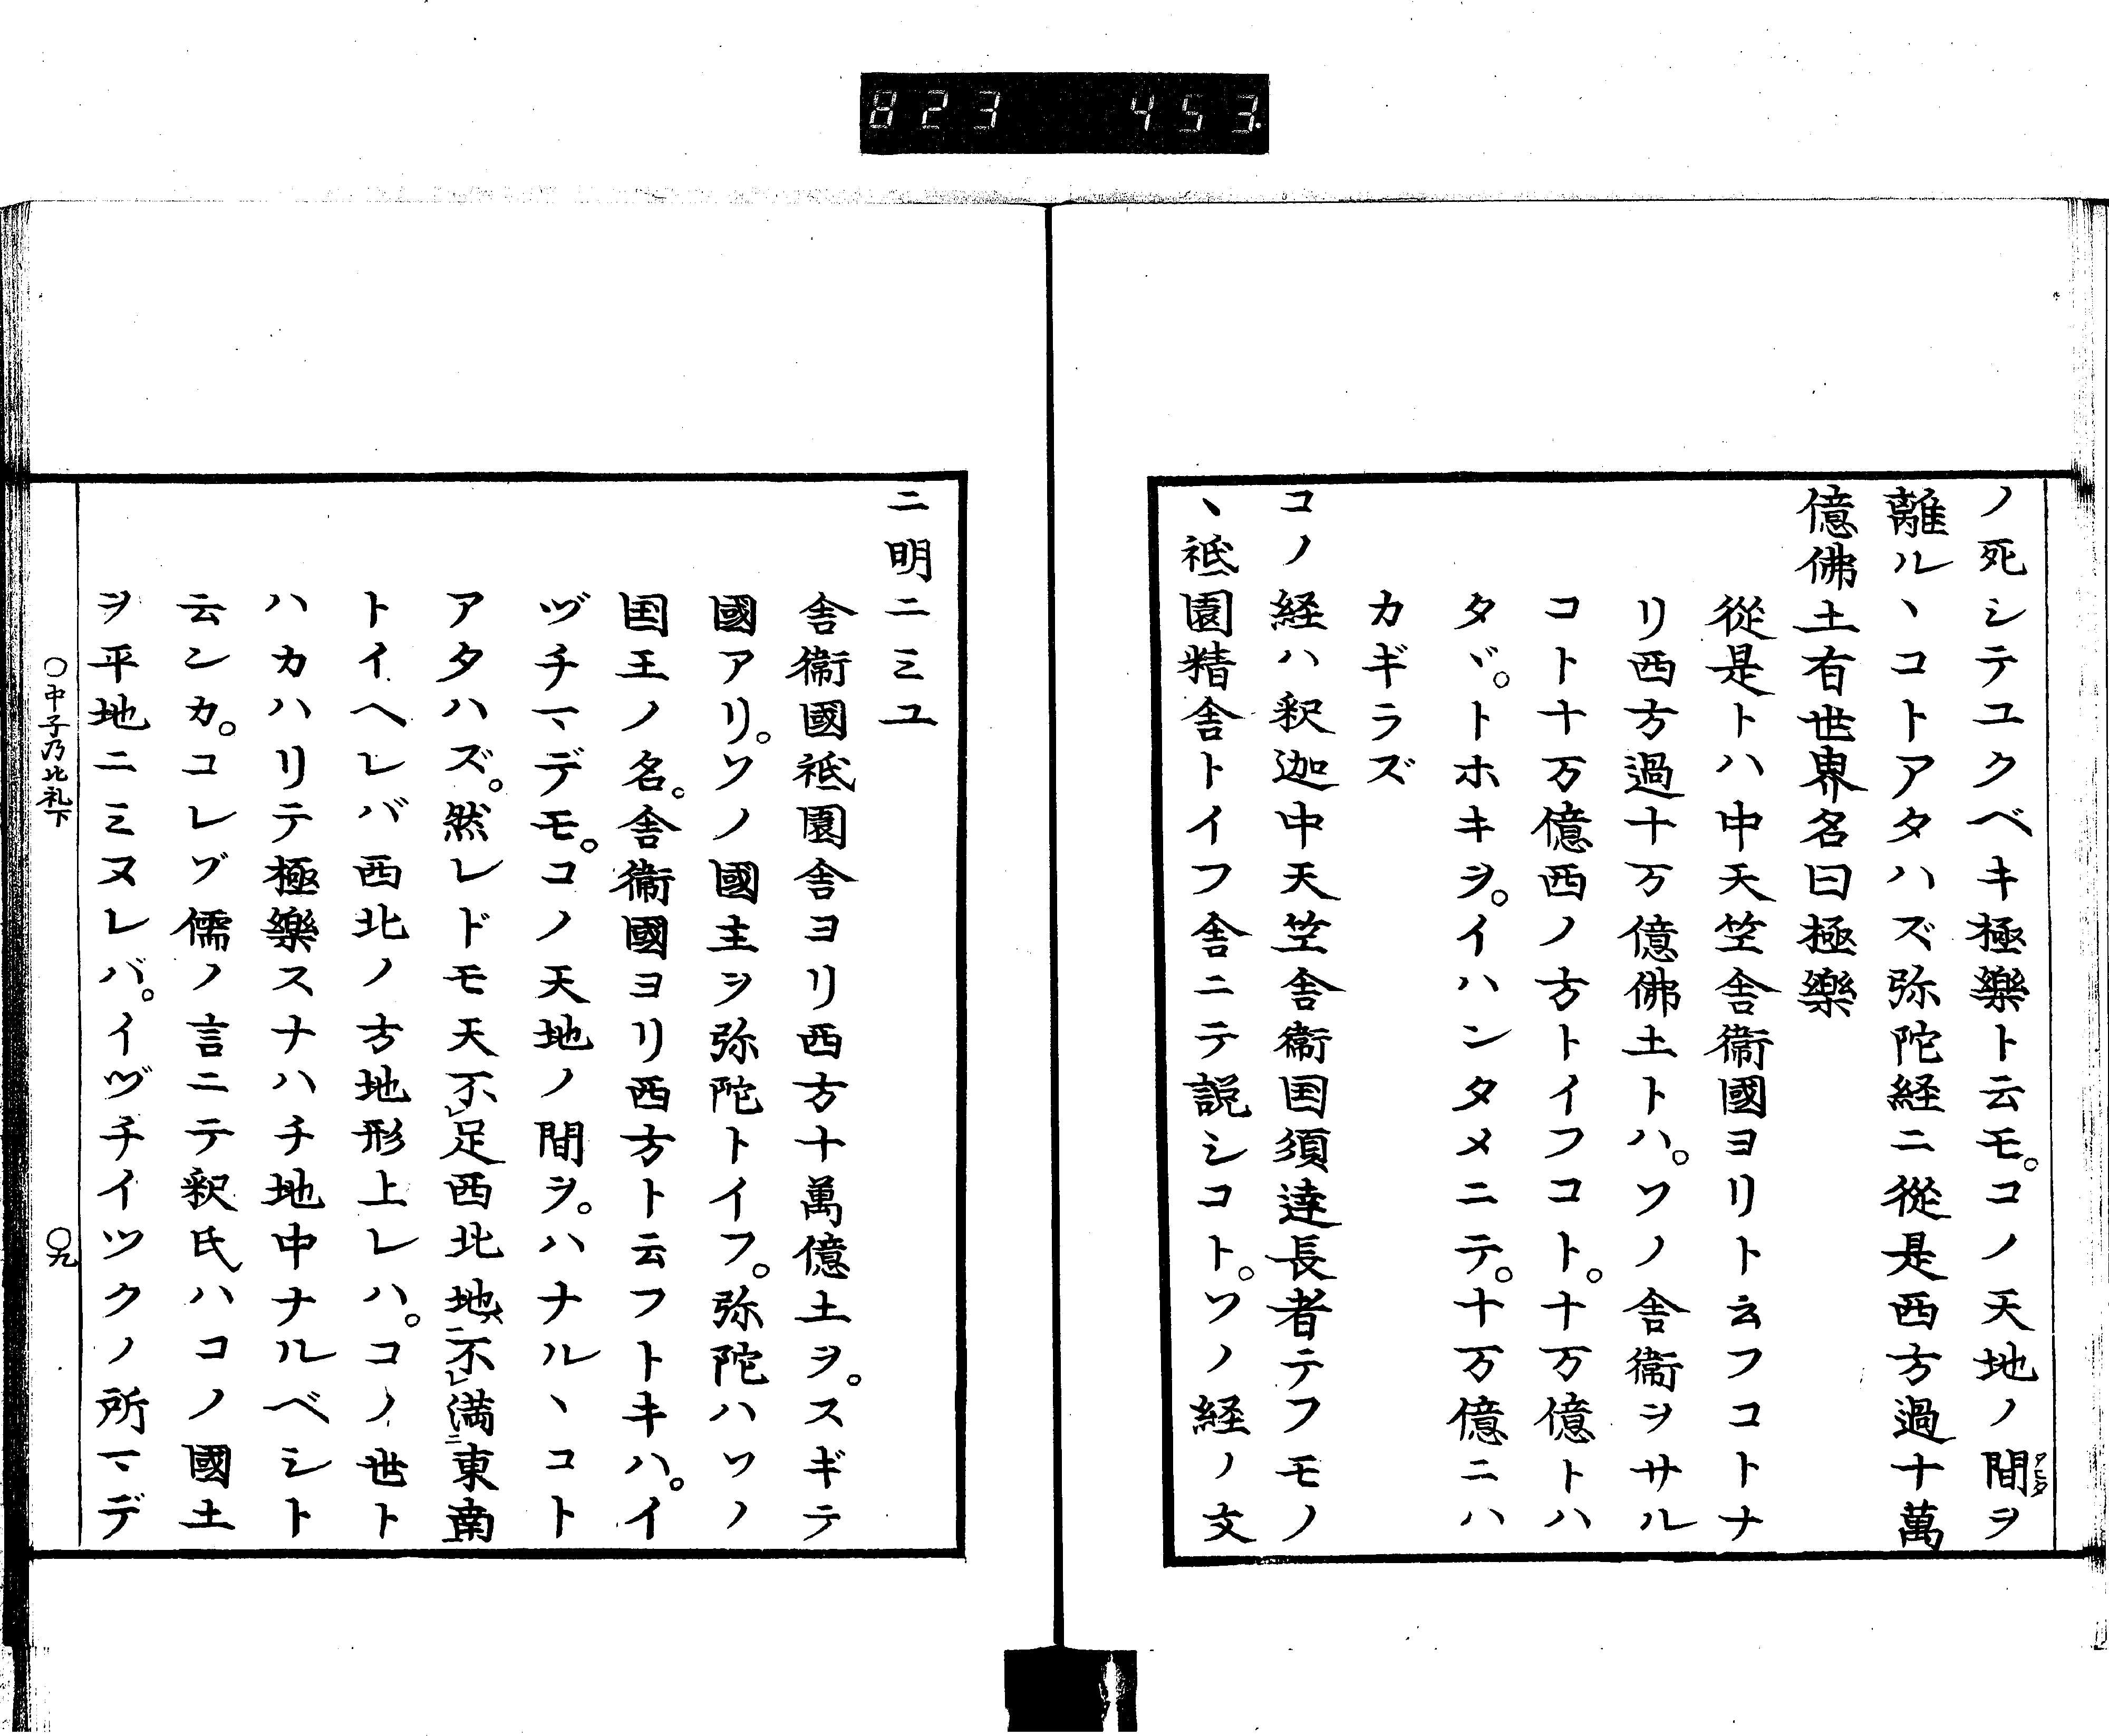 823 453
ノ死シテユクベキ極樂ト云モ。コノ天地ノ間ヲ
アヒタ
離ルヽコトアタハズ弥陀経ニ從是西方過十萬
億佛土有世界名曰極樂
從是トハ中天竺舎衞國ヨリト云フコトナ
リ西方過十万億佛土トハ。ソノ舎衞ヲサル
コト十万億西ノ方トイフコト。十万億トハ
タヾ。トホキヲ。イハンタメニテ。十万億ニハ
カギラズ
コノ経ハ釈迦中天竺舎衞国須達長者テフモノ
ヽ祗園精舎トイフ舎ニテ説シコト。ソノ経ノ文
ニ明ニミユ
舎衞國祗園舎ヨリ西方十萬億土ヲ。スギテ
國アリ。ソノ國主ヲ弥陀トイフ。弥陀ハソノ
国王ノ名。舎衞國ヨリ西方ト云フトキハ。イ
ヅチマデモ。コノ天地ノ間ヲ。ハナルヽコト
アタハズ。然レドモ天不レ足西北地不レ満二東南
トイヘレバ西北ノ方地形上レハ。コノ世ト
ハカハリテ極樂スナハチ地中ナルベシト
云ンカ。コレゾ儒ノ言ニテ釈氏ハコノ國土
ヲ平地ニミヌレバ。イヅチイツクノ所マデ
○中子乃比礼下
○九